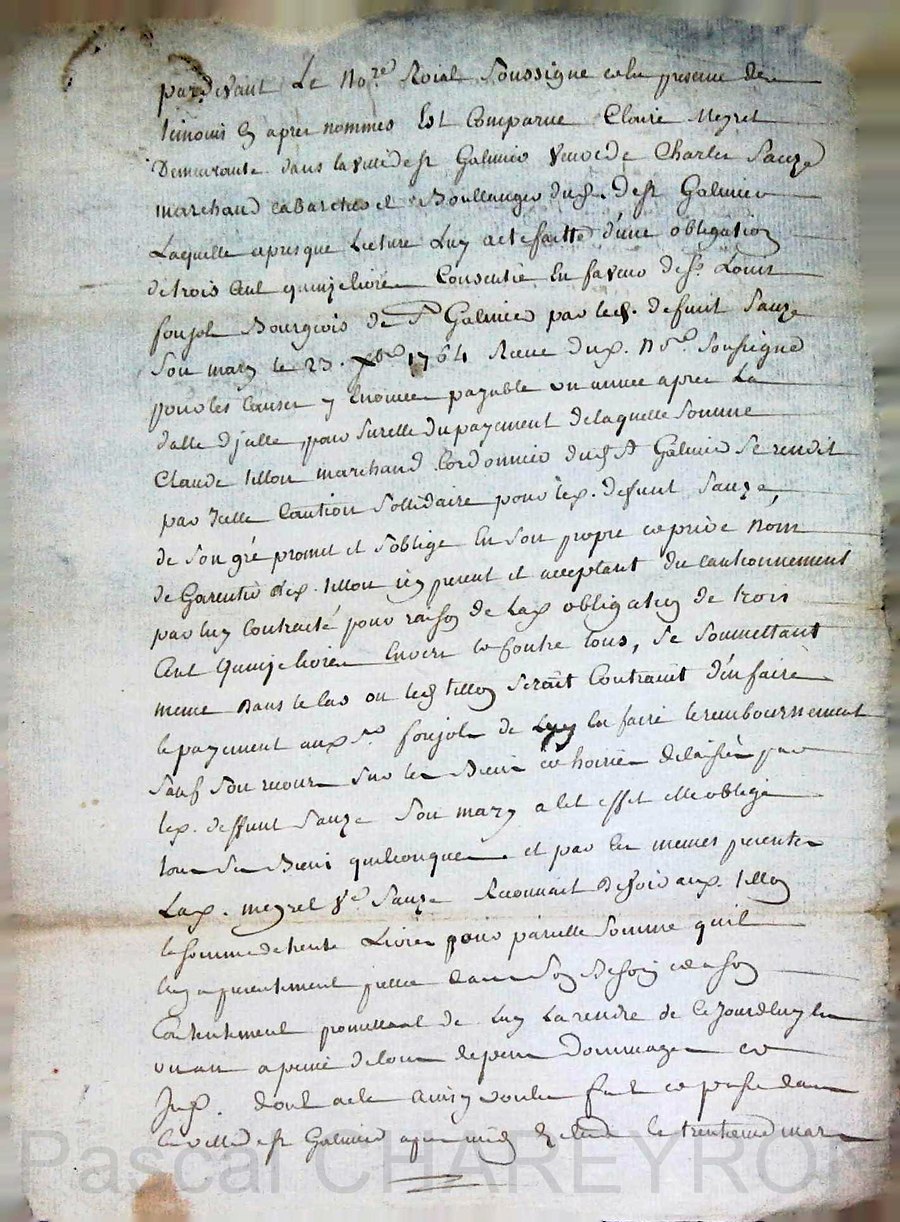 pardevant Le no.re Roial Soussigne en presence des
temoins cy apres nommes Est Comparue Claire Meyret
Demeurante dans la ville de st Galmier veuve de Charles Sauze
marchand cabartier et Boullanger dud. de st Galmier
Laquelle apres que Lecture Luy a eté faitte d'une obligation
de trois Cent quinze livres Consentie En faveur de sr Louis
foujols Bourgeois de St Galmier par led. defunt Sauze
Son mary le 23. xbre 1764 Receue du no.re Soussigné
pour les Causes y Enoncées payable un année apres La
datte d'jcelle pour Surette du payement de laquelle Somme
Claude tillon marchand Cordonnier dud St Galmier Se rendit
par Jcelle Caution Sollidaire pour le defunt Sauze,
de Son gré promet et S'oblige En Son propre et privé Nom
de Garentir tillon icy present et acceptant du cautionnement
par luy Contracté pour raison de La obligation de trois
Cent Quinze livres Envers et Contre tous, Se Soumettant
meme dans le Cas ou led tillon Seroit Contraint d'en faire
le payement au sr foujols de Luy En faire le remboursement
Sauf Son recours Sur les Biens et hoirie delaissée par
le deffunt Sauze Son mary a Cet effet elle oblige
tous Ses Biens quelconques et par les memes presentes
La meyret ve Sauze Reconnait Devoir au tillon
la somme de trente Livres pour pareille Somme qu'il
luy a presentement prettée dans Son Besoin et a son
Contentement promettant de Luy La rendre de Ce Jourdhuy En
un an a peine de tous depens Dommages et
dont acte Ainsy voulu fait et passé dans
la ville de st Galmier apres midy le trentieme mars
Pascal CHAREYRON